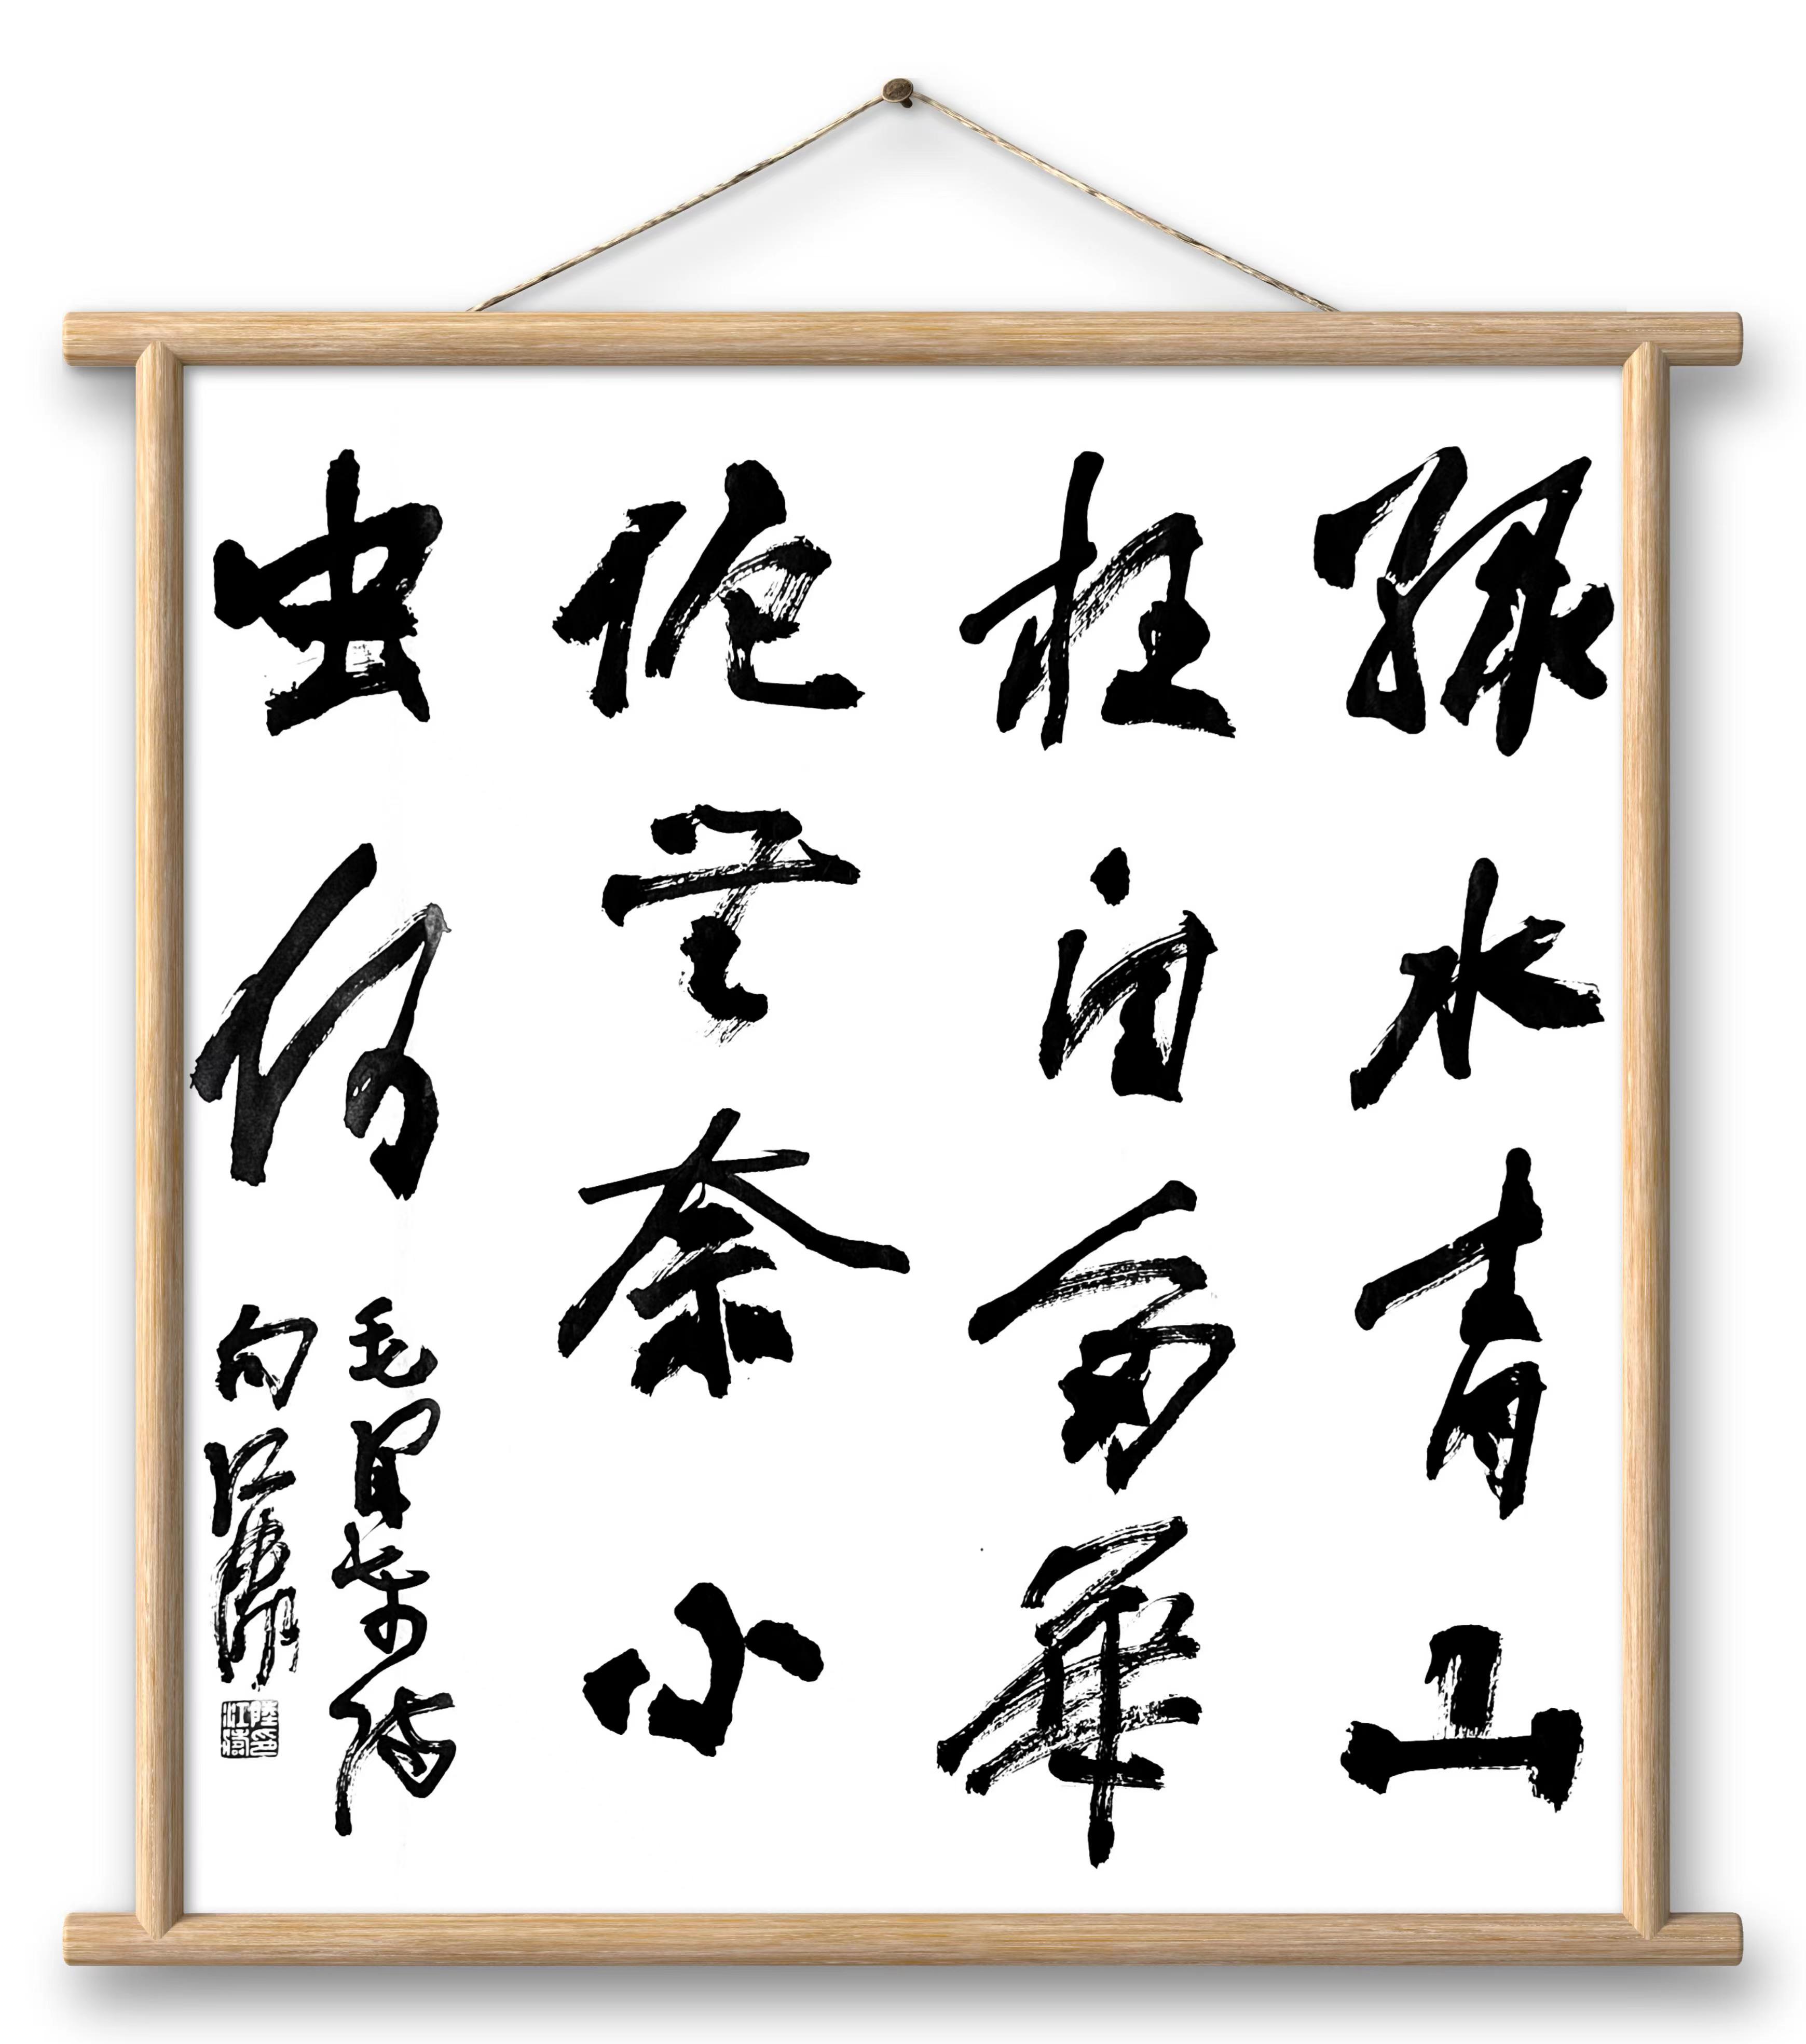 绿水青山
枉自多華
佗无奈小
虫何
毛泽东诗
句江涛